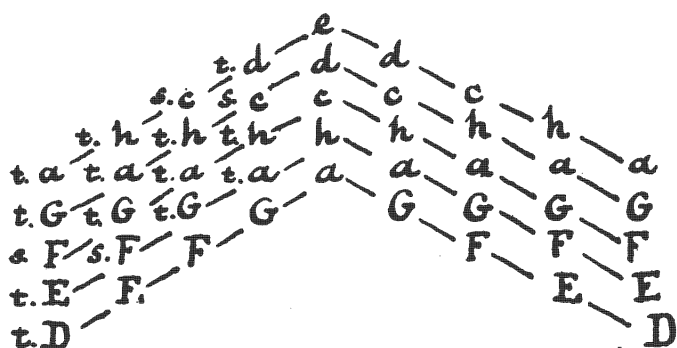 e
t. d d d
s. c s. c c c c
t. h t. h t. h h h h h
t. a t. a t. a t. a a a a a a
t. G t. G t. G G G G G G
s F s. F F F F F
t. E F. E E
t. D D